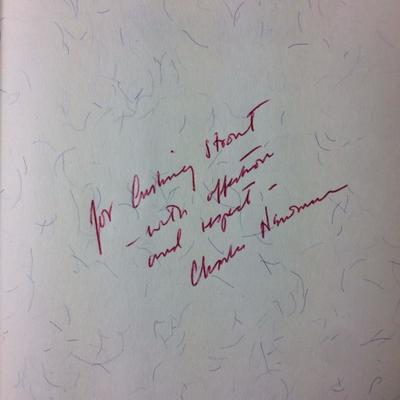 for Cushing Strout
- with affection
and respect -
Charles Newman